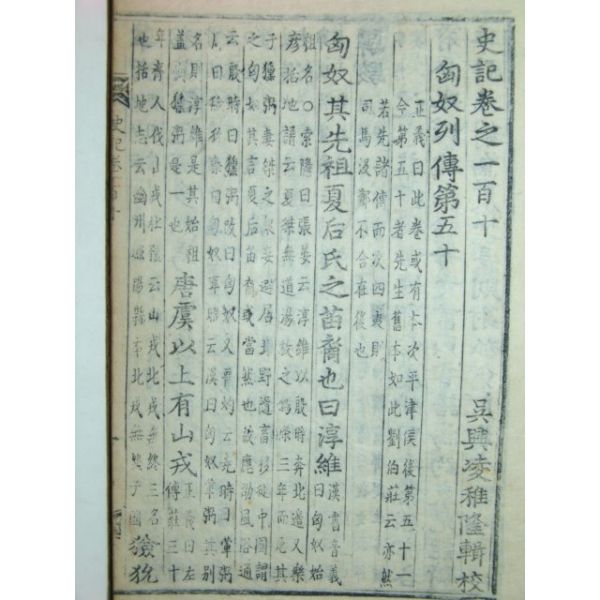 史記卷之一百十
吳興凌稚隆輯校
匈奴列傳第五十
正義曰此卷或有本次平津侯後第五十二
今第五十者先生舊本如此劉伯莊云亦然
若先諸傳而次四夷則
司馬汲鄭不合在後也
匈奴其先祖夏后氏之苗裔也曰淳維
漢書音義
曰匈奴始
祖名○索隱曰張晏云淳維以殷時奔北邊又樂
彦括地譜云夏桀無道湯放之鳴條三年而死其
子獯粥妻桀之衆妾避居北野隨畜移徙中國謂
之匈奴其言夏后苗裔或當然也故應劭風俗通
云殷時曰獯粥改曰匈奴又晉灼云堯時曰葷粥
周曰獫狁秦曰匈奴韋昭云漢曰匈奴葷粥其別
名則淳維是其始祖
蓋與獯粥是一也
唐虞以上有山戎
正義曰左
傳莊三十
年齊人伐山戎杜預云山戎北戎無終三名
也括地志云幽州漁陽縣本北戎無終子國
獫狁